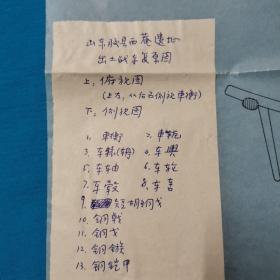 山东胶县西菴遗址
出土战车复原图
上：俯视图
(上方，从后面侧视车衡)
下：侧视图
1. 车衡 2. 车轭
3. 车辀(辕) 4. 车舆
5. 车轴 6. 车轮
7. 车毂 8. 车軎
9. 短胡铜戈
10. 铜戟
11. 铜戈
12. 铜镞
13. 铜铠甲